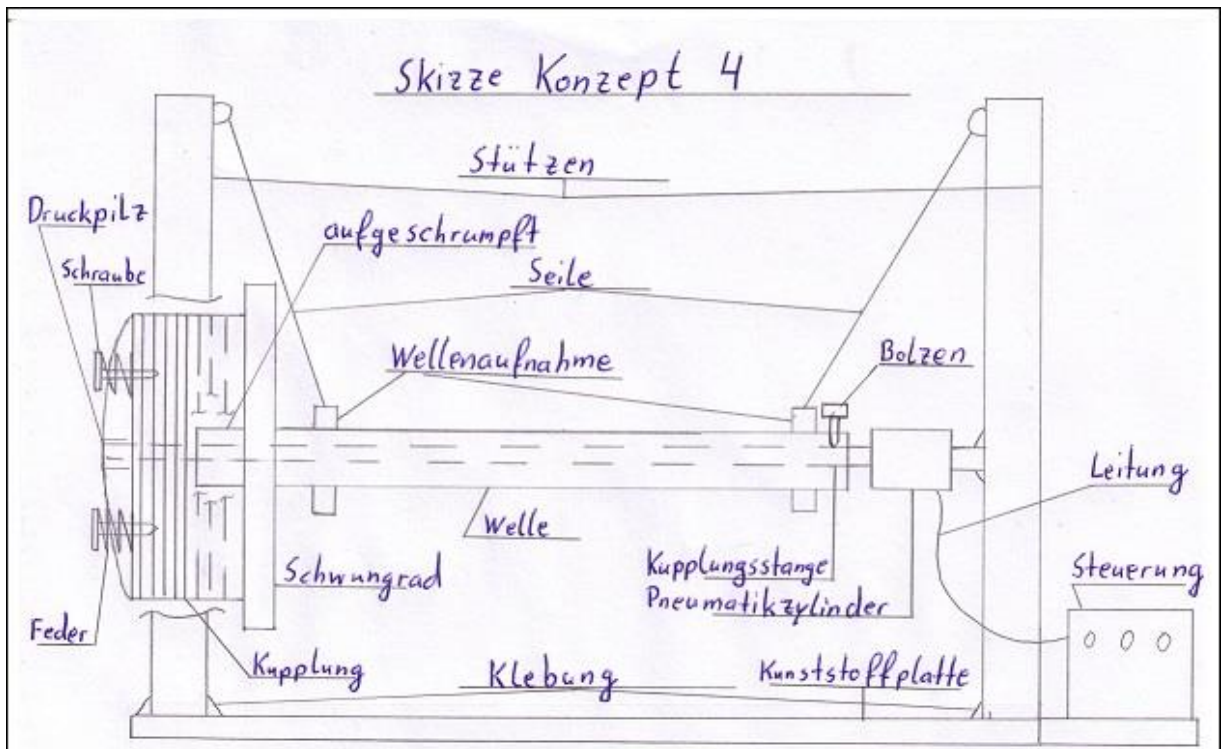 Skizze Konzept 4
Stützen
Druckpilz
aufgeschrumpft
Schraube
Seile
Wellenaufnahme
Bolzen
Leitung
Welle
Schwungrad
Kupplungsstange
Pneumatikzylinder
Steuerung
Feder
Kupplung
Klebung
Kunststoffplatte